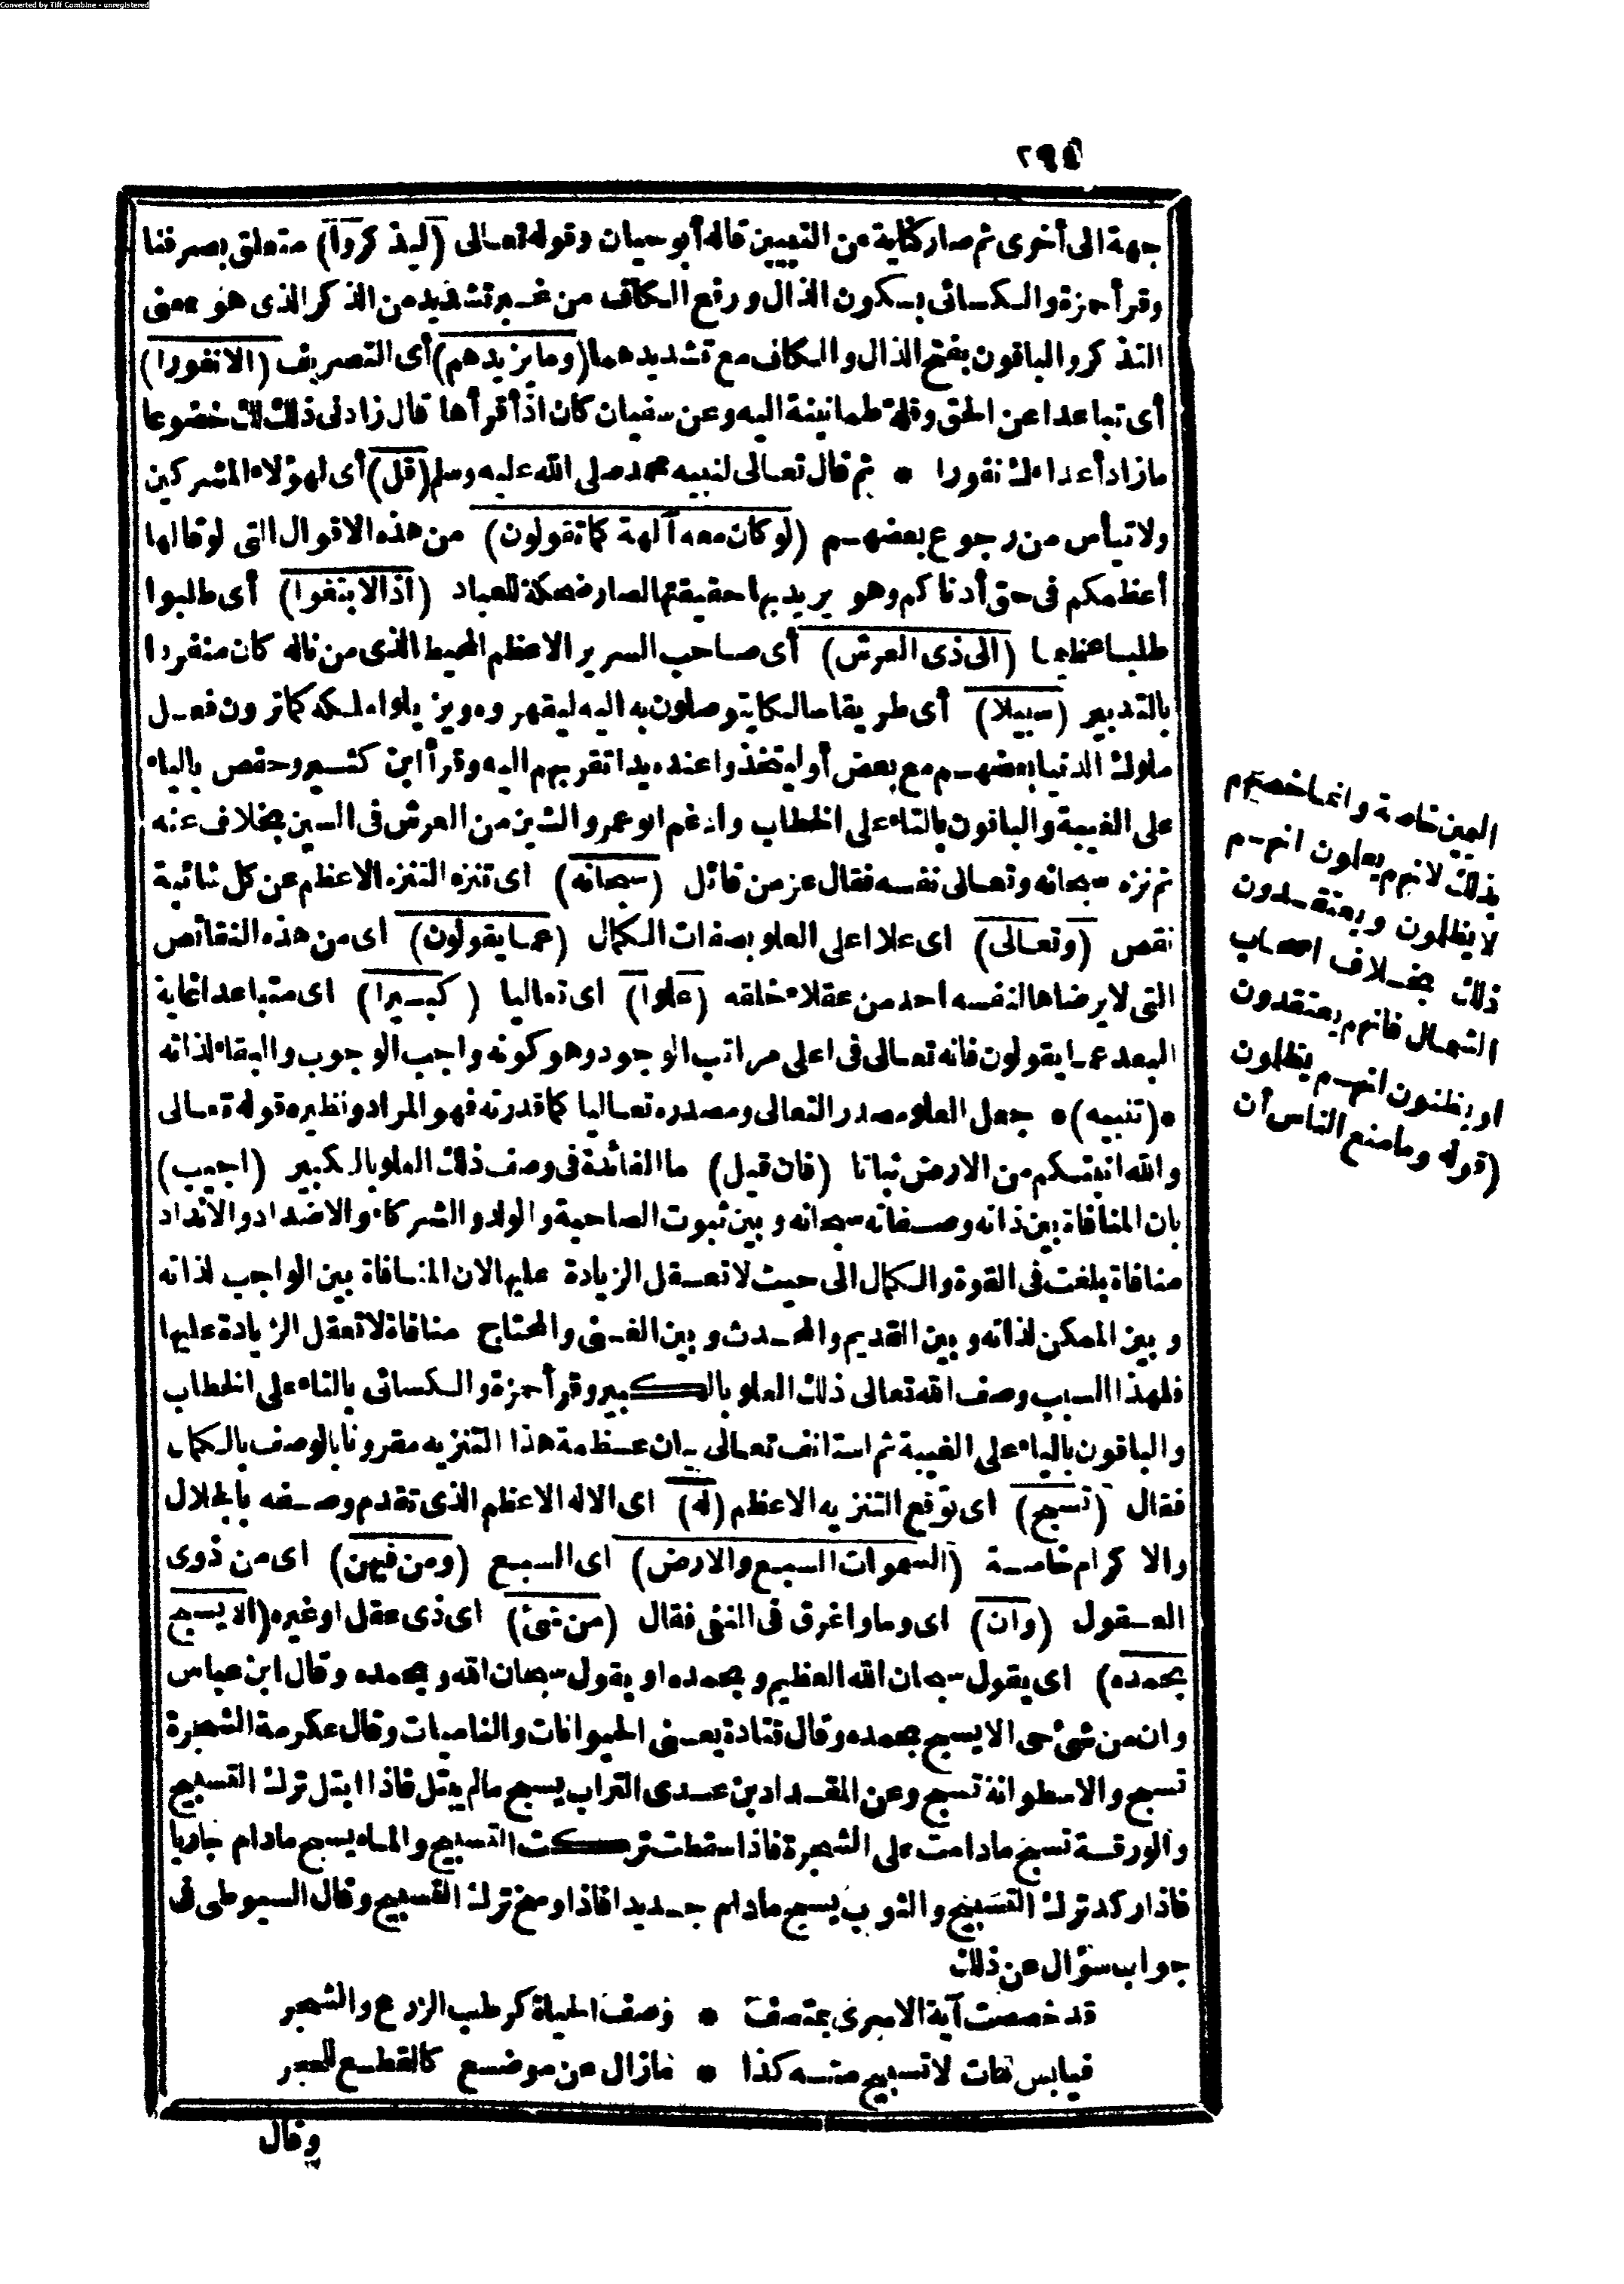 Converted by Tiff Combine - unregistered
جهة الى أخرى ثم صار كناية عن التبيين قاله أبو حيان وقوله تعالى (ليذكروا) متعلق بصرفنا
وقرأ حمزة والكسائى بسكون الذال ورفع الكاف من غير تشديد من الذكر الذى هو بمعنى
التذكر والباقون بفتح الذال والكاف مع تشديدهما (وما يزيدهم) أى التصريف (الا نفورا)
أى تباعدا عن الحق وقلة طمأنينة اليه وعن سفيان كان اذا قرأها قال زادنى ذلك لك خضوعا
ما زاد أعداءك نفورا * ثم قال تعالى لنبيه محمد صلى الله عليه وسلم (قل) أى لهؤلاء المشركين
ولا تيأس من رجوع بعضهم (لو كان معه آلهة كما تقولون) من هذه الاقوال التى لو قالها
أعظمكم فى حق أدناكم وهو يريد بها حقيقتها لصار ضحكة للعباد (اذا لابتغوا) أى طلبوا
طلبا عظيما (الى ذى العرش) أى صاحب السرير الاعظم المحيط الذى من ناله كان منفردا
بالتدبير (سبيلا) أى طريقا سالكا يتوصلون به اليه ليقهروه ويزيلوا ملكه كما ترون فعل
ملوك الدنيا بعضهم مع بعض أو ليتخذوا عنده يدا تقربهم اليه وقرأ ابن كثير وحفص بالياء
على الغيبة والباقون بالتاء على الخطاب وادغم ابو عمرو الشين من العرش فى السين بخلاف عنه
ثم نزه سبحانه وتعالى نفسه فقال عز من قائل (سبحانه) اى تنزه التنزه الاعظم عن كل شائبة
نقص (وتعالى) اى علا اعلى العلو بصفات الكمال (عما يقولون) اى من هذه النقائص
التى لا يرضاها لنفسه احد من عقلاء خلقه (علوا) اى تعاليا (كبيرا) اى متباعدا غاية
البعد عما يقولون فانه تعالى فى اعلى مراتب الوجود وهو كونه واجب الوجوب والبقاء لذاته
* (تنبيه) * جعل العلو مصدر التعالى ومصدره تعاليا كما قدرته فهو المراد ونظيره قوله تعالى
والله انبتكم من الارض نباتا (فان قيل) ما الفائدة فى وصف ذلك العلو بالكبير (اجيب)
بان المنافاة بين ذاته وصفاته سبحانه وبين ثبوت الصاحبة والولد والشركاء والاضداد والانداد
منافاة بلغت فى القوة والكمال الى حيث لا تعقل الزيادة عليها لان المنافاة بين الواجب لذاته
وبين الممكن لذاته وبين القديم والمحدث وبين الغنى والمحتاج منافاة لا تعقل الزيادة عليها
فلهذا السبب وصف الله تعالى ذلك العلو بالكبير وقرأ حمزة والكسائى بالتاء على الخطاب
والباقون بالياء على الغيبة ثم استأنف تعالى بيان عظمة هذا التنزيه مقرونا بالوصف بالكمال
فقال (تسبح) اى توقع التنزيه الاعظم (له) اى الاله الاعظم الذى تقدم وصفه بالجلال
والاكرام خاصة (السموات السبع والارض) اى السبع (ومن فيهن) اى من ذوى
العقول (وان) اى وما واغرق فى النفى فقال (من شئ) اى ذى عقل او غيره (الا يسبح
بحمده) اى يقول سبحان الله العظيم وبحمده او يقول سبحان الله وبحمده وقال ابن عباس
وان من شئ حى الا يسبح بحمده وقال قتادة يعنى الحيوانات والناميات وقال عكرمة الشجرة
تسبح والاسطوانة تسبح وعن المقداد بن عدى التراب يسبح مالم يبتل فاذا ابتل ترك التسبيح
والورقة تسبح ما دامت على الشجرة فاذا سقطت تركت التسبيح والماء يسبح مادام جاريا
فاذا ركد ترك التسبيح والثوب يسبح مادام جديدا فاذا وسخ ترك التسبيح وقال السيوطى فى
جواب سؤال عن ذلك
قد خصصت آية الاسرى بمتصف * وصف الحياة كرطب الزرع والشجر
فيابس مات لا تسبيح منه كذا * مازال عن موضع كالقطع للحجر
وقال
اليمين خاصة وانما خصهم
بذلك لانهم يعلون انهم
لا يظلمون ويعتقدون
ذلك بخلاف اصحاب
الشمال فانهم يعتقدون
او يظنون انهم يظلمون
(قوله وما منع الناس أن